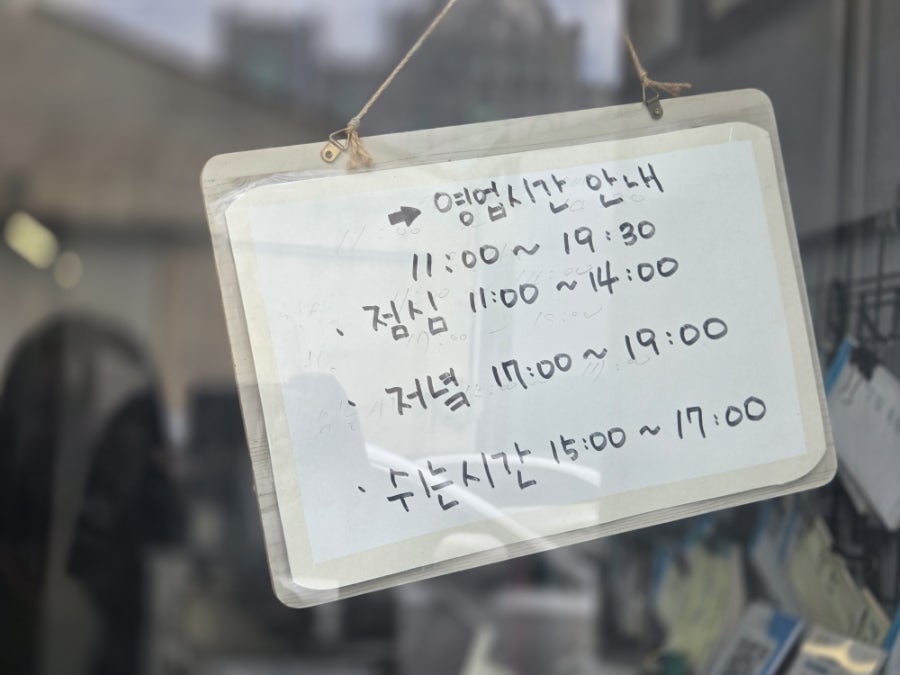 ➡ 영업시간 안내
11:00 ~ 19:30
· 점심 11:00 ~ 14:00
· 저녁 17:00 ~ 19:00
· 쉬는시간 15:00 ~ 17:00